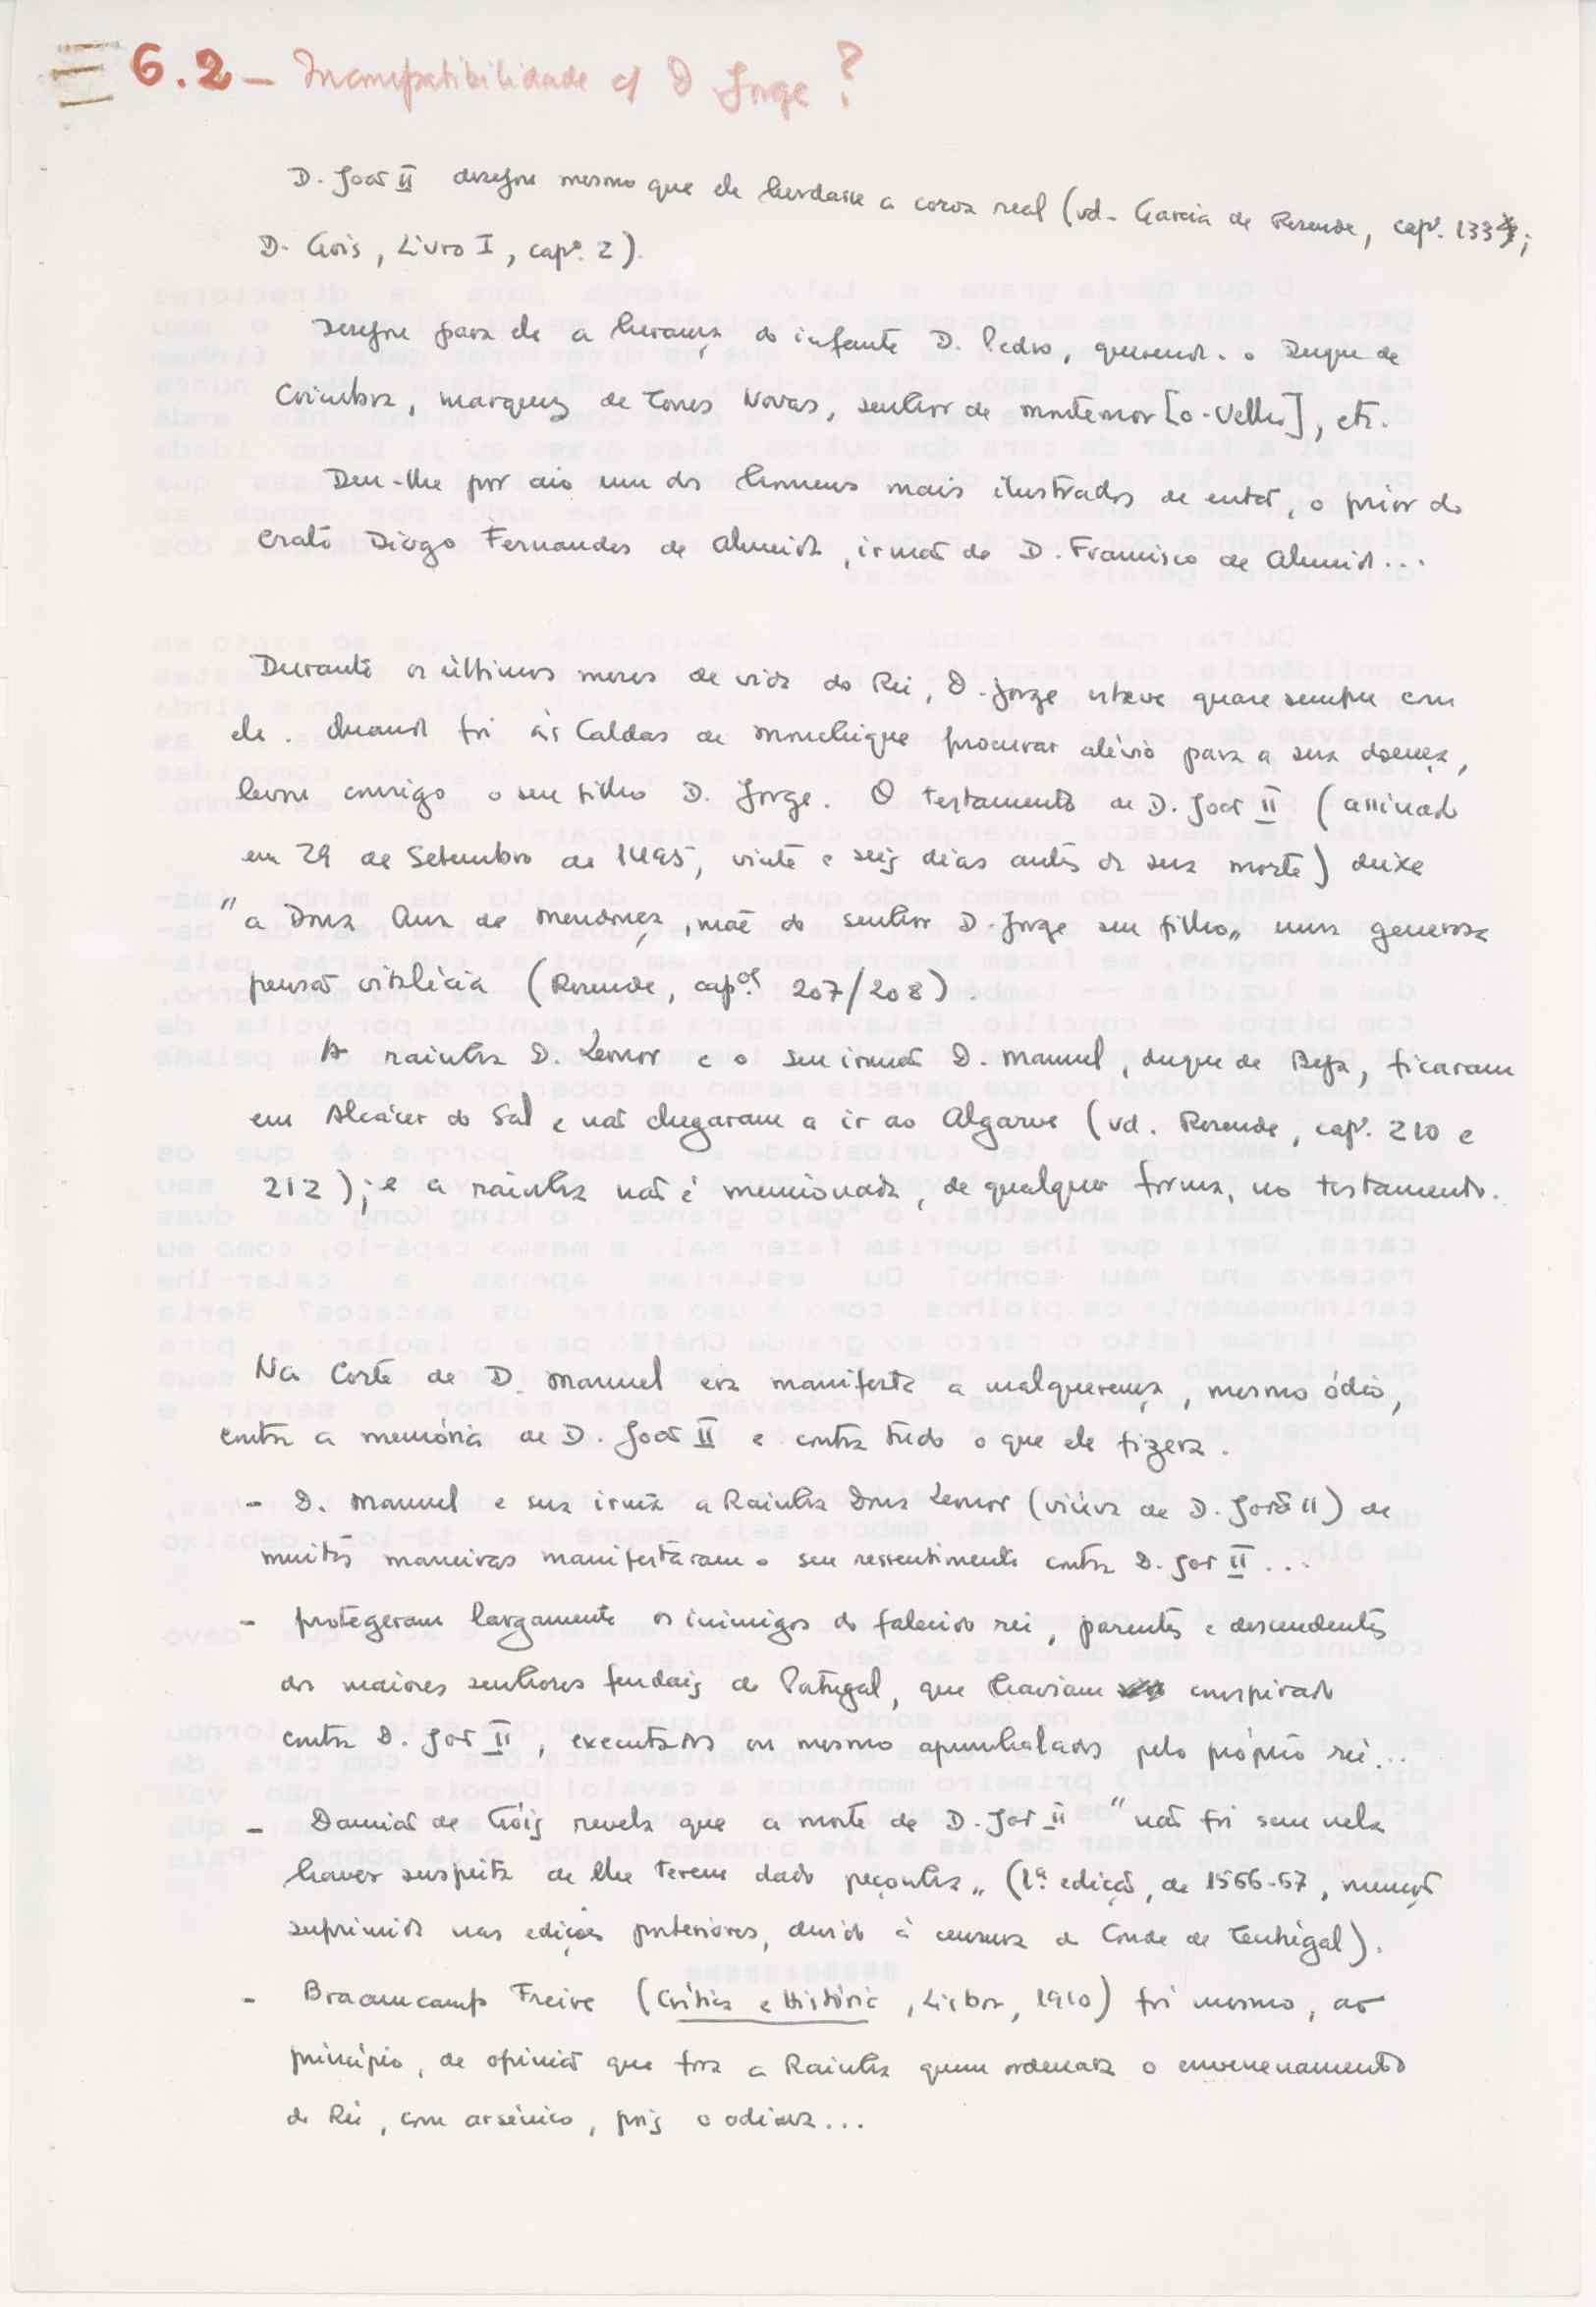 6.2 – Incompatibilidade c/ D Jorge?
D. João II desejou mesmo que ele herdasse a coroa real (vd. Garcia de Resende, capº. 133;
D. Góis, Livro I, capº. 2).
Desejou para ele a herança do infante D. Pedro, querendo-o Duque de
Coimbra, marquez de Torres Novas, senhor de Montemor [o-Velho], etc.
Deu-lhe por aio um dos homens mais ilustrados de então, o prior do
Crato Diogo Fernandes de Almeida, irmão de D. Francisco de Almeida...
Durante os últimos meses de vida do Rei, D. Jorge esteve quase sempre com
ele. Quando foi às Caldas de Monchique procurar alívio para a sua doença,
levou consigo o seu filho D. Jorge. O testamento de D. João II (assinado
em 29 de Setembro de 1495, vinte e seis dias antes da sua morte) deixa
"a Dona Ana de Mendonça, mãe do senhor D. Jorge seu filho" uma generosa
pensão vitalícia (Resende, capºs. 207/208).
A rainha D. Leonor e o seu irmão D. Manuel, duque de Beja, ficaram
em Alcácer do Sal e não chegaram a ir ao Algarve (vd. Resende, capº. 210 e
212); e a rainha não é mencionada, de qualquer forma, no testamento.
Na Corte de D. Manuel era manifesta a malquerença, mesmo ódio,
contra a memória de D. João II e contra tudo o que ele fizera.
- D. Manuel e sua irmã a Rainha Dona Leonor (viúva de D. João II) de
muitas maneiras manifestaram o seu ressentimento contra D. João II...
- protegeram largamente os inimigos do falecido rei, parentes e descendentes
dos maiores senhores feudais de Portugal, que haviam conspirado
contra D. João II, executados ou mesmo apunhalados pelo próprio rei...
- Damião de Góis revela que a morte de D. João II "não foi sem nela
haver suspeita de lhe terem dado peçonha" (1ª edição, de 1566-67, menção
suprimida nas edições posteriores, devido à censura do Conde de Tentúgal).
- Braamcamp Freire (Crítica e História, Lisboa, 1910) foi mesmo, ao
princípio, de opinião que fora a Rainha quem ordenara o envenenamento
do Rei, com arsénico, pois o odiava...